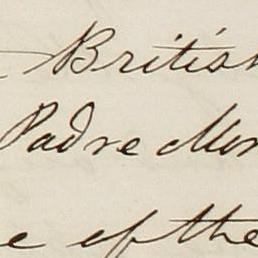 British
Padre Mon
e of the